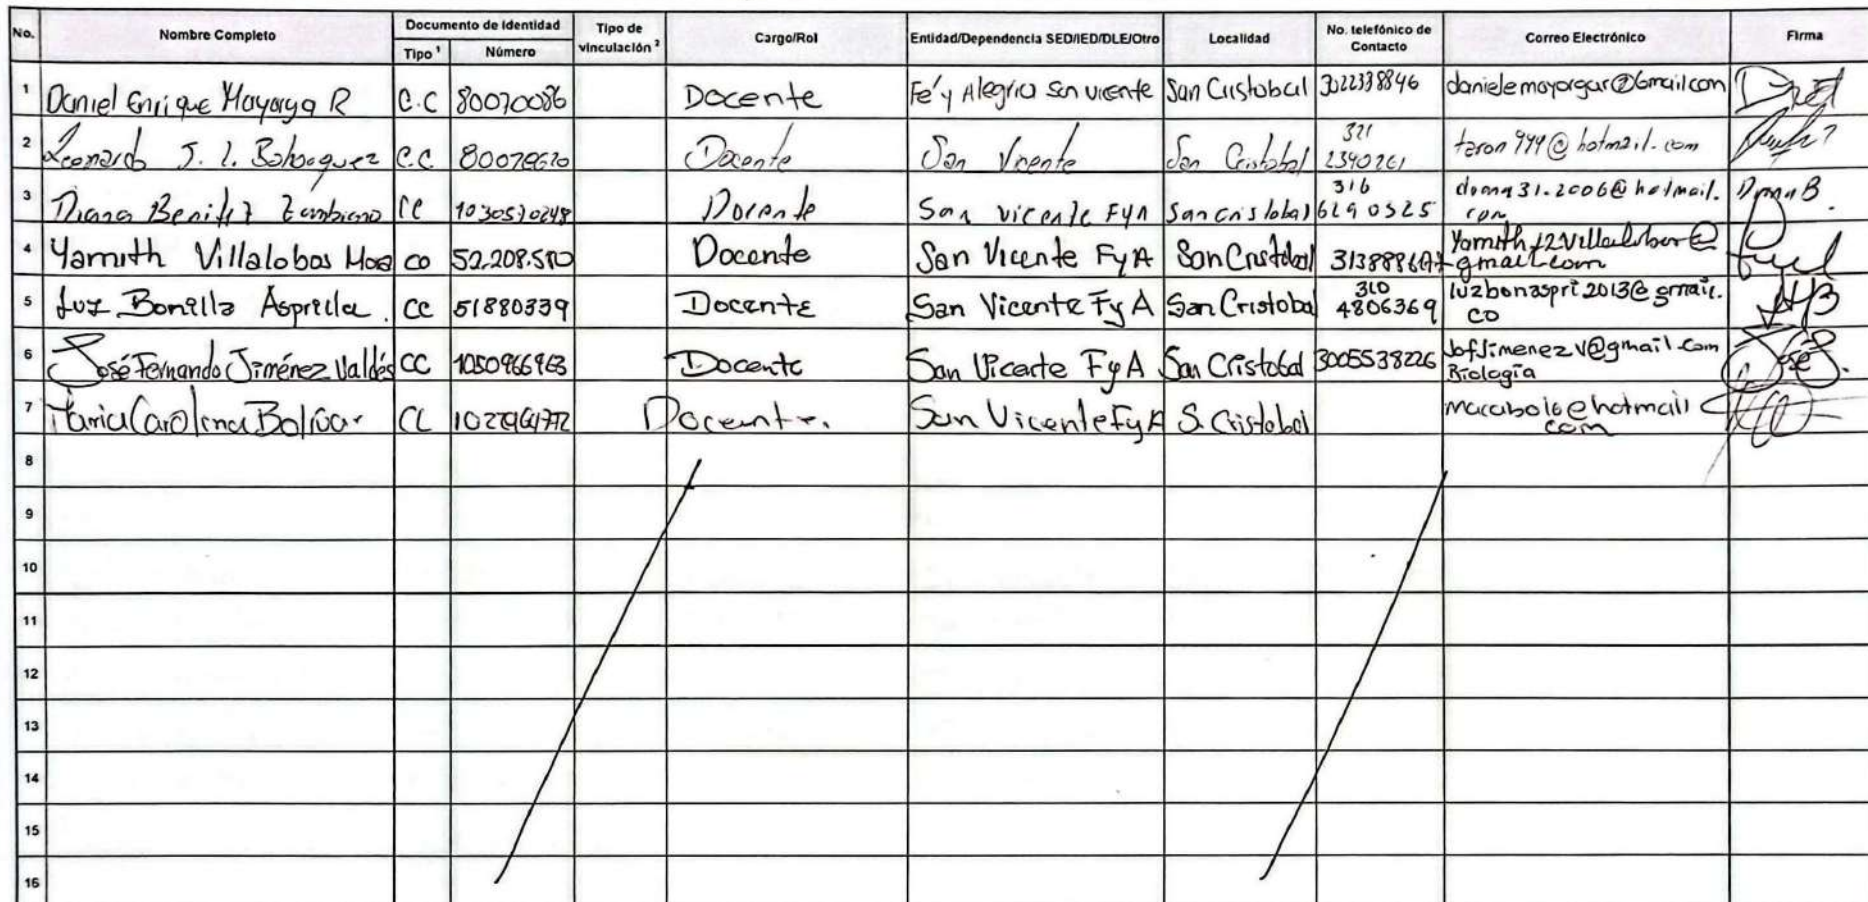 No. Nombre Completo Documento de Identidad Tipo de vinculación ² Cargo/Rol Entidad/Dependencia SED/IED/DLE/Otro Localidad No. telefónico de Contacto Correo Electrónico Firma
Tipo ¹ Número
1 Daniel Enrique Mayorga R C.C 80070086 Docente Fé y Alegria San vicente San Cristobal 3022338846 danielemayorgar@Gmail.com
2 Leonardo J. C.C. Docente San Vicente San Cristobal 321 2340261 @hotmail.com
3 Diana Benitez Zambrano CC 1030570248 Docente San vicente FyA San cristobal 316 6290325 diana31.2006@hotmail.com Diana B.
4 Yamith Villalobos CC 52.208.580 Docente San Vicente FyA San Cristobal @gmail.com
5 Luz Bonilla Asprilla. CC 51880339 Docente San Vicente Fy A San Cristobal 310 4806369 luzbonaspri2013@gmail.co
6 José Fernando Jiménez Valdés CC 1050966963 Docente San Vicente FyA San Cristobal 3005538226 JofJimenezv@gmail.com Biología José
7 Maria Carolina Bolívar CC Docente. San Vicente FyA S. Cristobal macabol6@hotmail.com
8
9
10
11
12
13
14
15
16